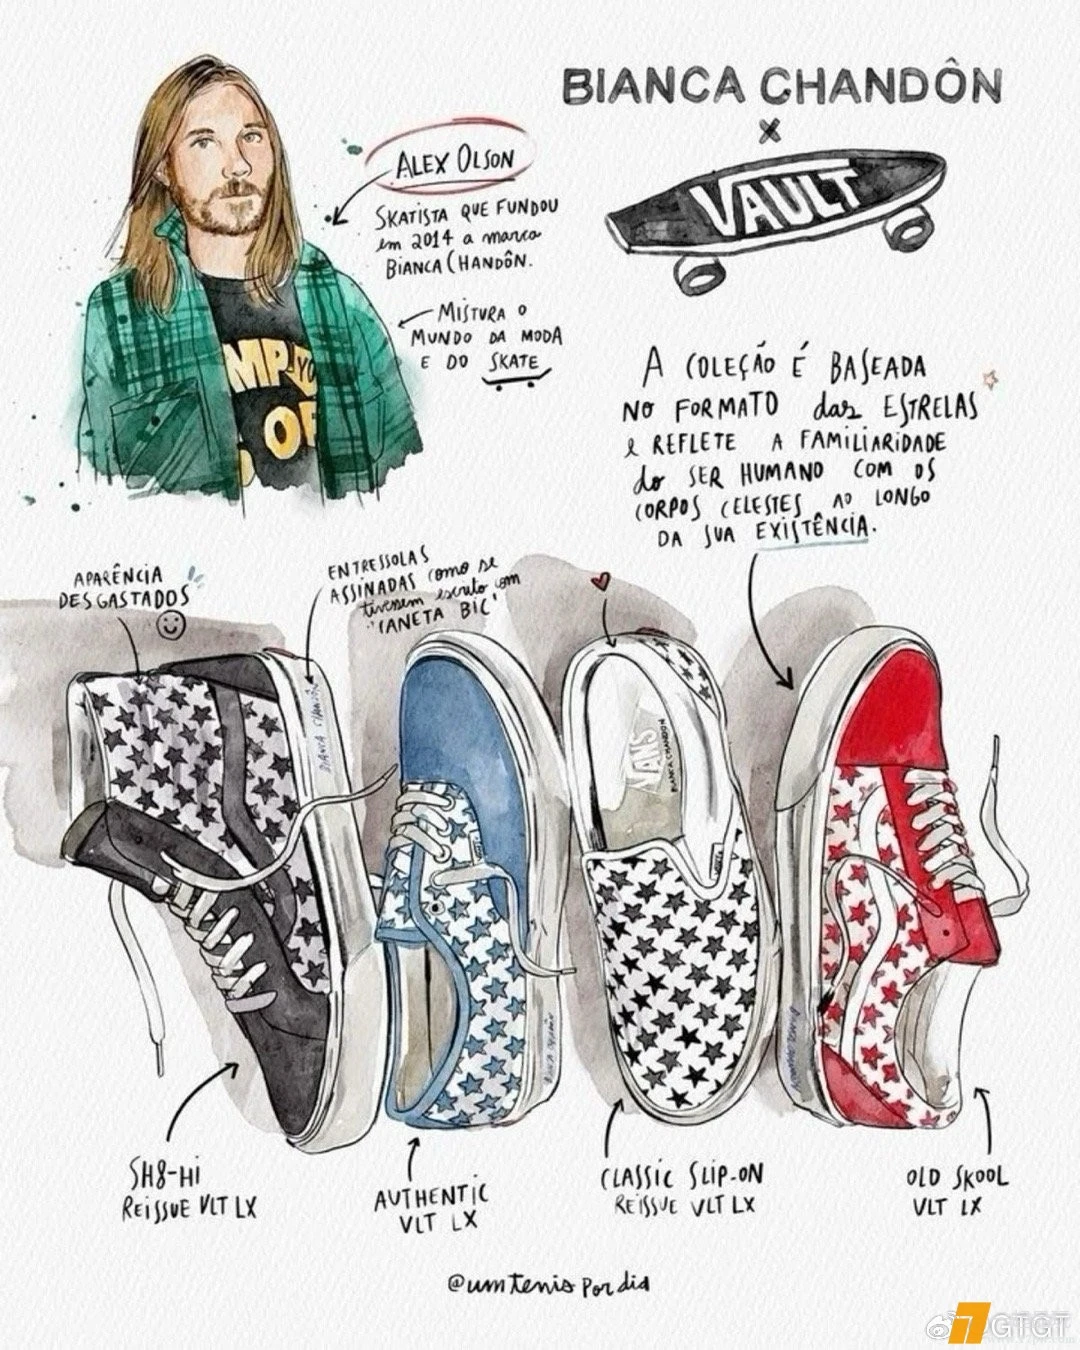 BIANCA CHANDÔN
x
VAULT
ALEX OLSON
SKATISTA QUE FUNDOU
em 2014 a marca
BIANCA CHANDÔN.
MISTURA O
MUNDO DA MODA
E DO SKATE
A COLEÇÃO É BASEADA
NO FORMATO das ESTRELAS
e REFLETE A FAMILIARIDADE
do SER HUMANO COM OS
CORPOS CELESTES AO LONGO
DA SUA EXISTÊNCIA.
APARÊNCIA
DESGASTADOS
ENTRESSOLAS
ASSINADAS como se
tivessem escrito com
'CANETA BIC'
VANS
BIANCA CHANDON
SH8-Hi
REISSUE VLT LX
AUTHENTIC
VLT LX
CLASSIC SLIP-ON
REISSUE VLT LX
OLD SKOOL
VLT LX
@umtenispordia
GTGT